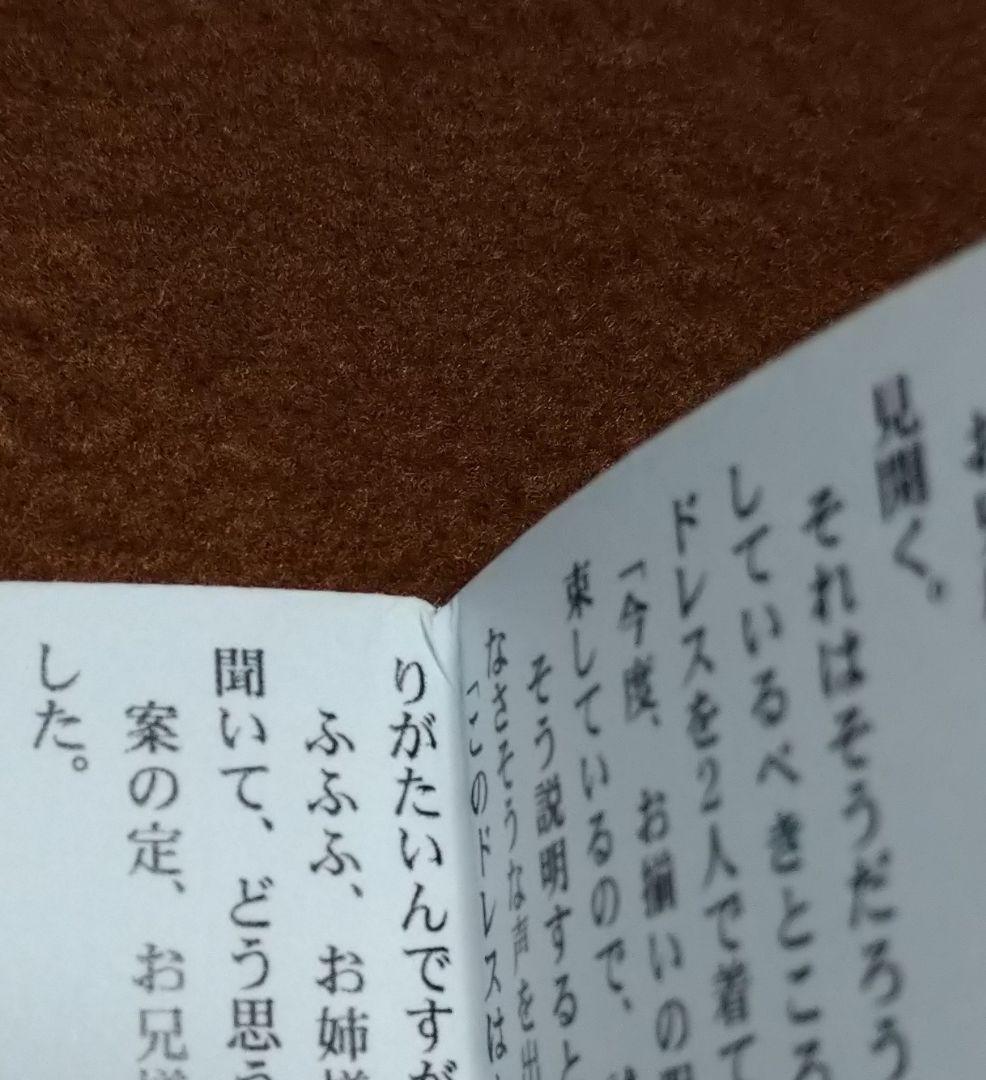 見開く。
それはそうだろう
しているべきところ
ドレスを2人で着て
「今度、お揃いの
東しているので、
そう説明すると
なさそうな声を出
「このドレスは
りがたいんですが
ふふふ、お姉様
聞いて、どう思う
案の定、お兄様
した。